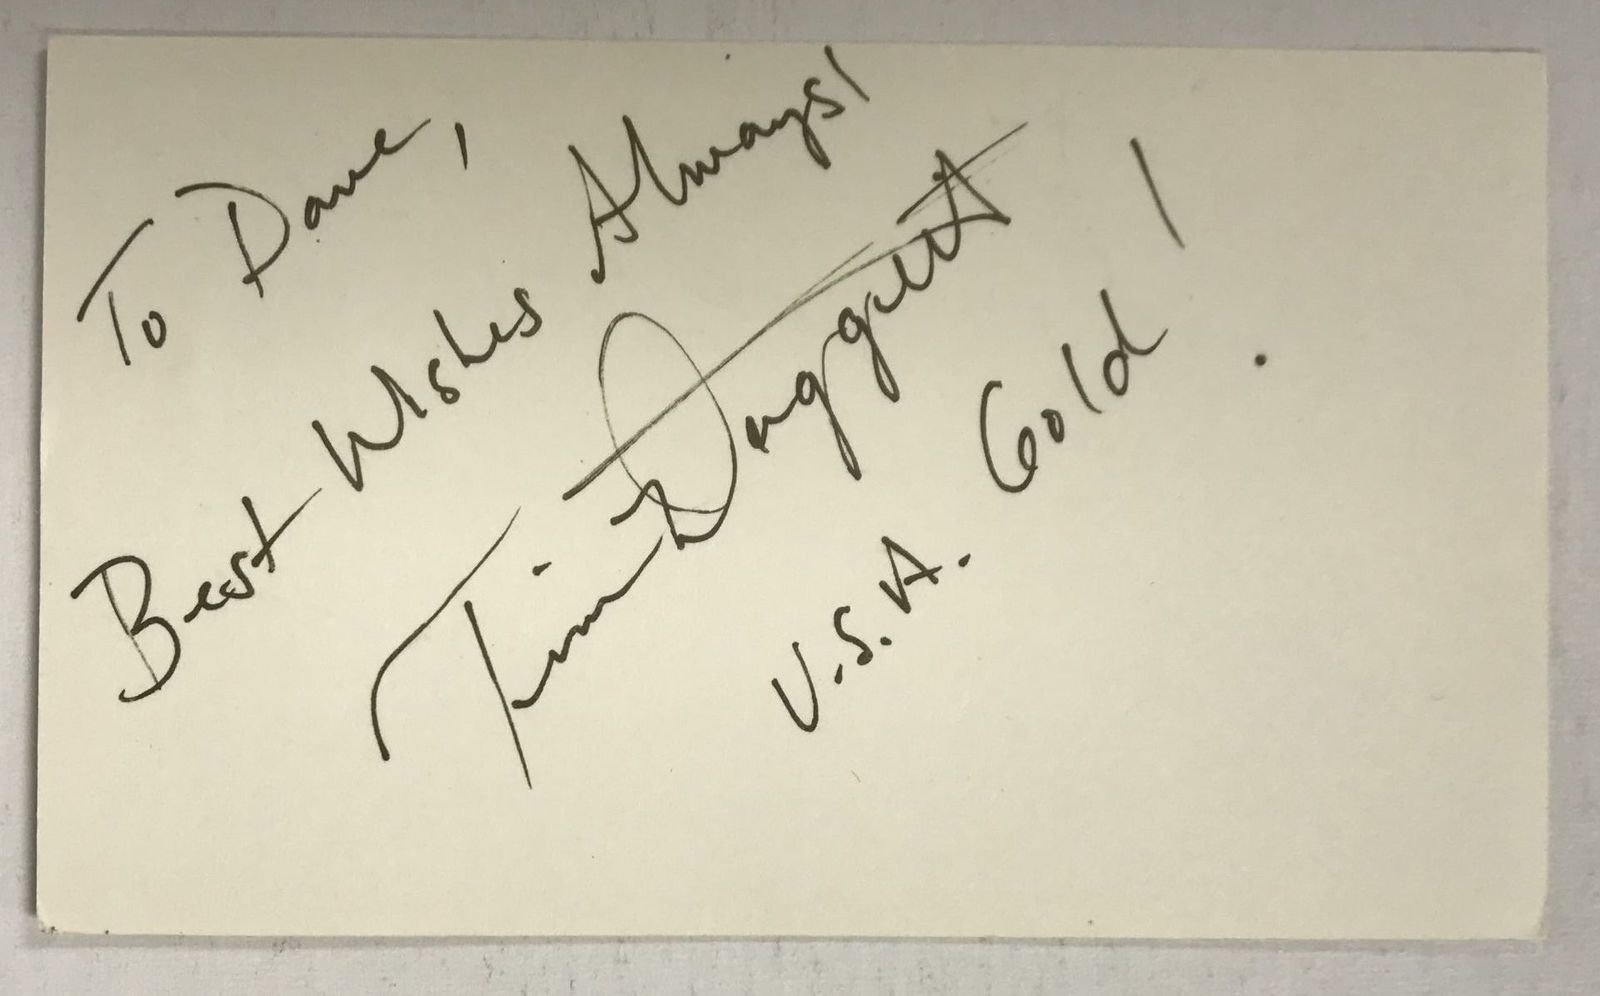 To Dave,
Best Wishes Always!
Tim Daggett
U.S.A. Gold!